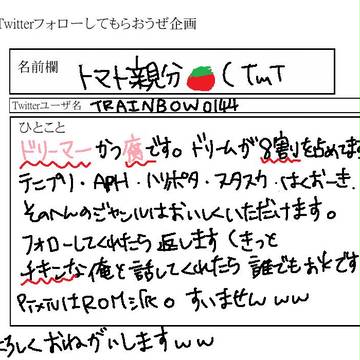 Twitterフォローしてもらおうぜ企画
名前欄 トマト親分🍅(TwT
Twitterユーザ名 TRAINBOW0144
ひとこと
ドリーマーかつ腐です。ドリームが8割を占めてま
テニプリ・APH・ハリポタ・スタスク・はくおーき.
そのへんのジャンルはおいしくいただけます。
フォローしてくれたら返します(きっと
チキンな俺と話してくれたら誰でもおkです
PixivはROM派。すいませんww
ろしくおねがいしますww